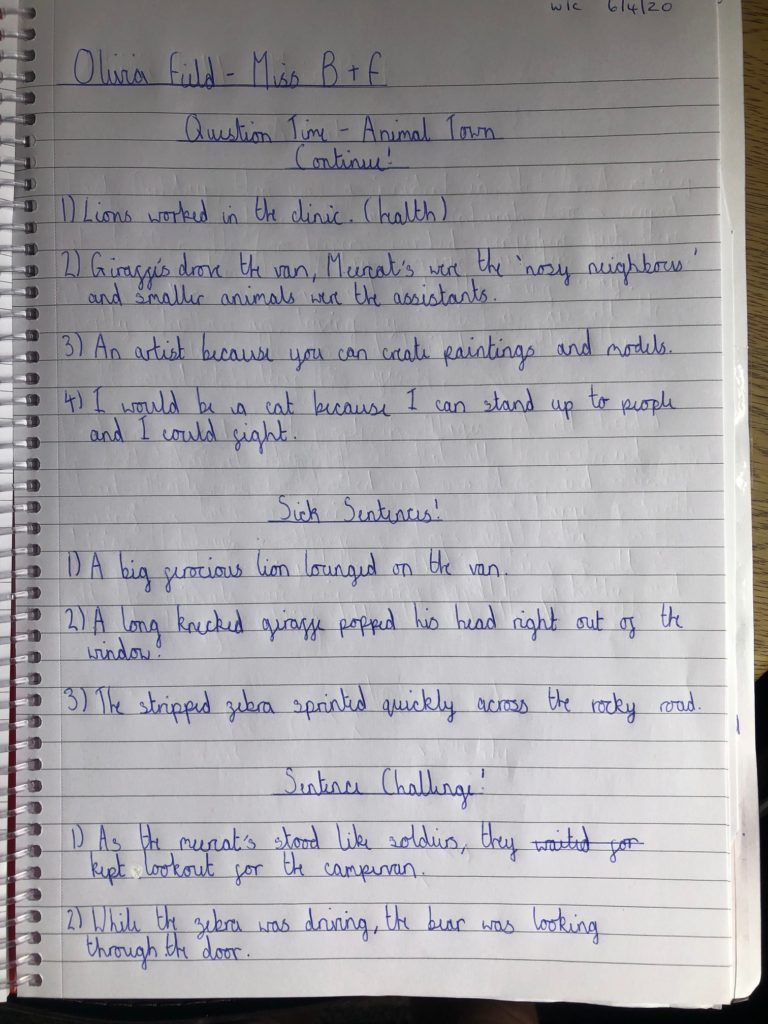 w/c 6/4/20
Olivia Field - Miss B + F
Question Time - Animal Town
Continue!
1) Lions worked in the clinic. (health)
2) Giraffe's drove the van, Meercat's were the 'nosy neighbours'
and smaller animals were the assistants.
3) An artist because you can create paintings and models.
4) I would be a cat because I can stand up to people
and I could fight.
Sick Sentences!
1) A big ferocious lion lounged on the van.
2) A long knecked giraffe popped his head right out of the
window!
3) The stripped zebra sprinted quickly across the rocky road.
Sentence Challenge!
1) As the meercat's stood like soldiers, they waited for
kept lookout for the campervan.
2) While the zebra was driving, the bear was looking
through the door.